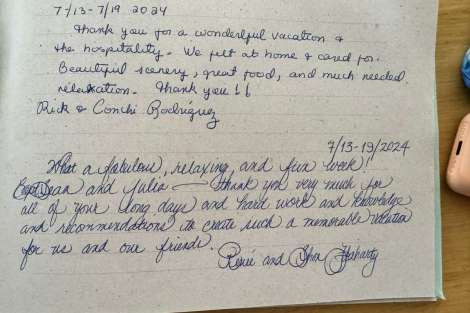 7/13-7/19 2024
Thank you for a wonderful vacation &
the hospitality. We felt at home & cared for.
Beautiful scenery, great food, and much needed
relaxation. Thank you !!
Rick & Conchi Rodríguez
7/13-19/2024
What a fabulous, relaxing, and fun week!
Capt Sean and Julia — Thank you very much for
all of your long days and hard work and knowledge
and recommendations to create such a memorable vacation
for us and our friends.
Renée and Shea